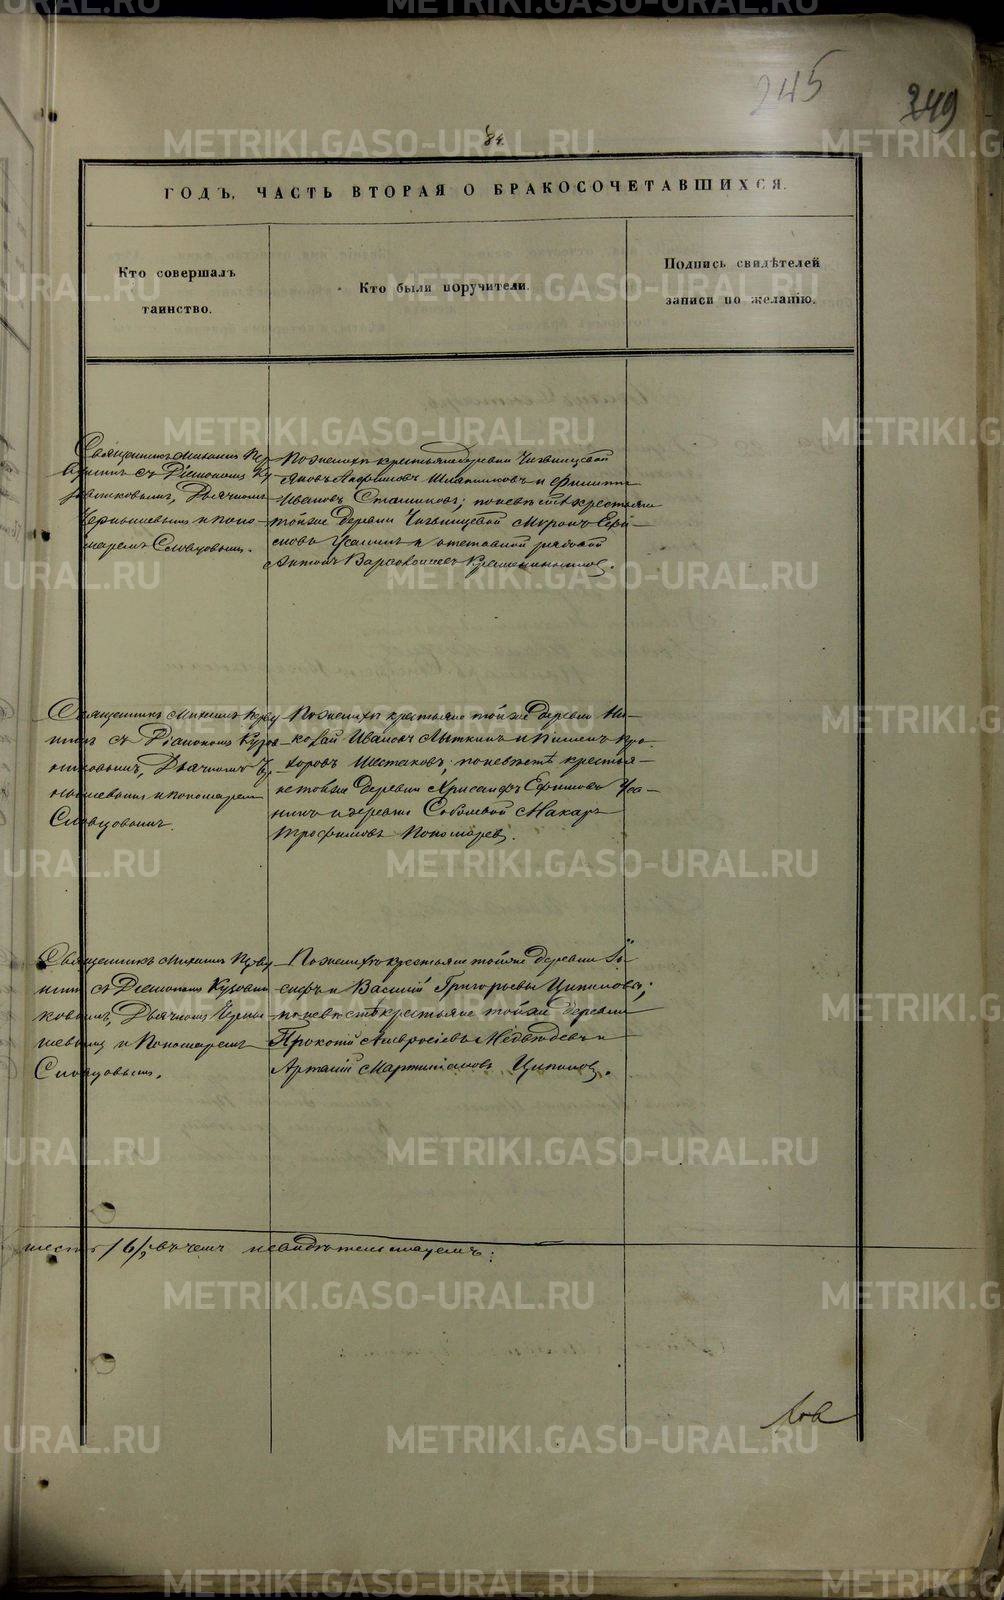 245
249
84.
ГОДЪ, ЧАСТЬ ВТОРАЯ О БРАКОСОЧЕТАВШИХСЯ.
Кто совершалъ
таинство.
Кто были поручители.
Подпись свидѣтелей
записи по желанію.
Священникъ Михаилъ Пер-
вушинъ съ Діакономъ Ку-
ровниковымъ, Дьячкомъ
Чернышевымъ и поно-
маремъ Словцовымъ.
По женихѣ крестьяне деревни
Яковъ и Филиппъ
Ивановъ; по невѣстѣ крестьяне
той же деревни Миронъ Ефи-
мовъ Усанинъ и отставной рядовой
Антонъ
Священникъ Михаилъ Перву
шинъ съ Діакономъ Куров
никовымъ, Дьячкомъ Чер-
нышевымъ и пономаремъ
Словцовымъ.
По женихѣ крестьяне той же деревни Ни-
колай Ивановъ Лыткинъ и Пименъ Про-
хоровъ Шестаковъ; по невѣстѣ крестья-
не той же деревни Хрисанфъ Ефимовъ Уса-
нинъ и деревни Соболевой Макаръ
Трофимовъ Пономаревъ.
Священникъ Михаилъ Перву
шинъ съ Діакономъ Куровни
ковымъ, Дьячкомъ Черны
шевымъ и Пономаремъ
Словцовымъ.
По женихѣ крестьяне той же деревни Іо-
сифъ и Василій Григорьевы Ципиловы;
по невѣстѣ крестьяне той же деревни
Прокопій Амвросіевъ Медвѣдевъ и
Артемій Мартиніановъ Ципиловъ.
шесть /6/, въ чемъ и свидѣтельствуемъ:
METRIKI.GASO-URAL.RU